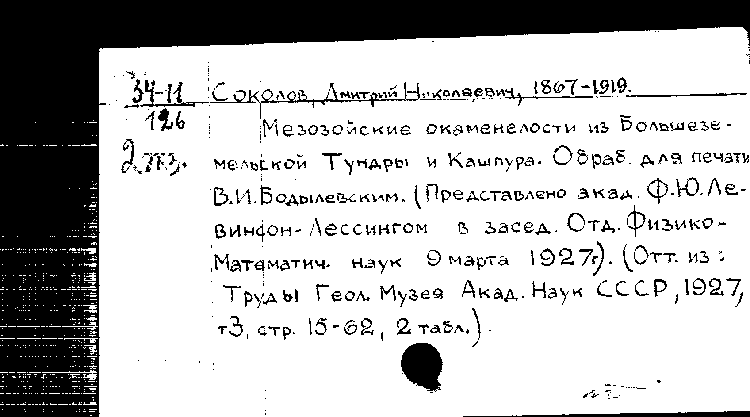 34-11 Соколов, Дмитрий Николаевич, 1867-1919.
126 Мезозойские окаменелости из Большезе-
2 экз. мельской Тундры и Кашпура. Обраб. для печати
В.И.Бодылевским. (Представлено акад. Ф.Ю.Ле-
винсон-Лессингом в засед. Отд. Физико-
Математич. наук 9 марта 1927г.). (Отт. из:
Труды Геол. Музея Акад. Наук СССР, 1927,
т3, стр. 15-62, 2 табл.).